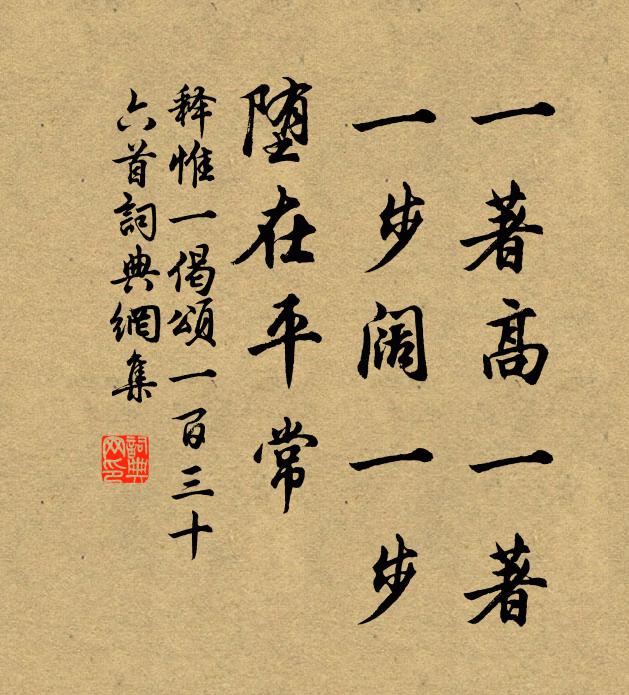 一著高一著
一步阔一步
堕在平常
释惟一偈頌一百三十
六首詞典網集
詞典
网印